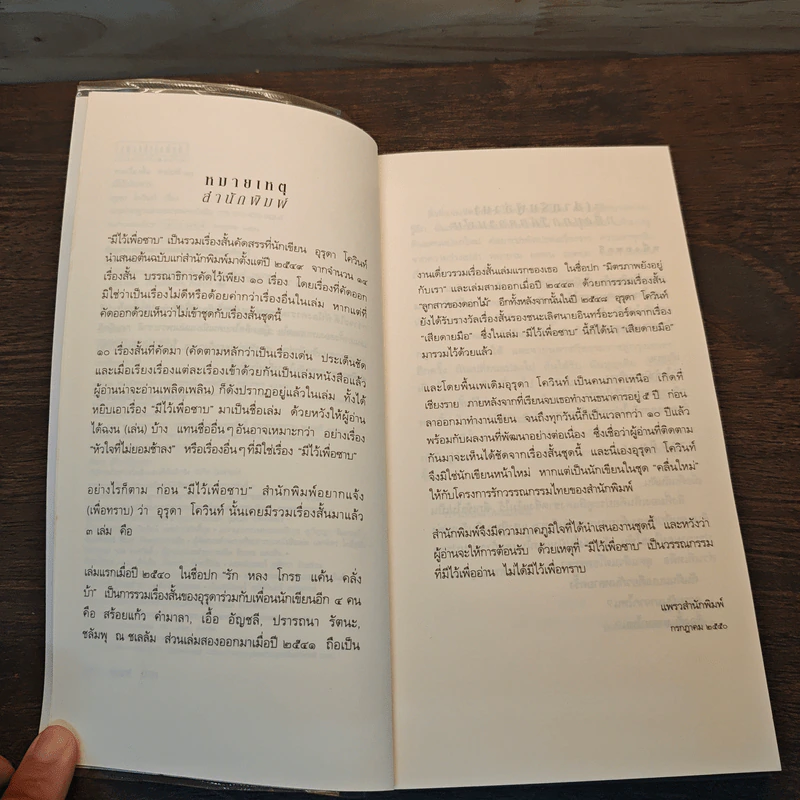 หมายเหตุ
สำนักพิมพ์
"มีไว้เพื่อซาบ" เป็นรวมเรื่องสั้นคัดสรรที่นักเขียน อุรุดา โควินท์
นำเสนอต้นฉบับแก่สำนักพิมพ์มาตั้งแต่ปี ๒๕๔๙ จากจำนวน ๑๔
เรื่องสั้น บรรณาธิการคัดไว้เพียง ๑๐ เรื่อง โดยเรื่องที่คัดออก
มิใช่ว่าเป็นเรื่องไม่ดีหรือด้อยค่ากว่าเรื่องอื่นในเล่ม หากแต่ที่
คัดออกด้วยเห็นว่าไม่เข้าชุดกับเรื่องสั้นชุดนี้
๑๐ เรื่องสั้นที่คัดมา (คัดตามหลักว่าเป็นเรื่องเด่น ประเด็นชัด
และเมื่อเรียงเรื่องแต่ละเรื่องเข้าด้วยกันเป็นเล่มหนังสือแล้ว
ผู้อ่านน่าจะอ่านเพลิดเพลิน) ก็ดังปรากฏอยู่แล้วในเล่ม ทั้งได้
หยิบเอาเรื่อง "มีไว้เพื่อซาบ" มาเป็นชื่อเล่ม ด้วยหวังให้ผู้อ่าน
ได้ฉงน (เล่น) บ้าง แทนชื่ออื่นๆ อันอาจเหมาะกว่า อย่างเรื่อง
"หัวใจที่ไม่ยอมช้าลง" หรือเรื่องอื่นๆ ที่มิใช่เรื่อง "มีไว้เพื่อซาบ"
อย่างไรก็ตาม ก่อน "มีไว้เพื่อซาบ" สำนักพิมพ์อยากแจ้ง
(เพื่อทราบ) ว่า อุรุดา โควินท์ นั้นเคยมีรวมเรื่องสั้นมาแล้ว
๓ เล่ม คือ
เล่มแรกเมื่อปี ๒๕๔๐ ในชื่อปก "รัก หลง โกรธ แค้น คลั่ง
บ้า" เป็นการรวมเรื่องสั้นของอุรุดาร่วมกับเพื่อนนักเขียนอีก ๔ คน
คือ สร้อยแก้ว คำมาลา, เอื้อ อัญชลี, ปรารถนา รัตนะ,
ชลัมพุ ณ ชเลลัม ส่วนเล่มสองออกมาเมื่อปี ๒๕๔๑ ถือเป็น
งานเดี่ยวรวมเรื่องสั้นเล่มแรกของเธอ ในชื่อปก "มิตรภาพยังอยู่
กับเรา" และเล่มสามออกเมื่อปี ๒๔๔๓ ด้วยการรวมเรื่องสั้น
"ลูกสาวของดอกไม้" อีกทั้งหลังจากนั้นในปี ๒๕๔๘ อุรุดา โควินท์
ยังได้รับรางวัลเรื่องสั้นรองชนะเลิศนายอินทร์อะวอร์ดจากเรื่อง
"เสียดายมือ" ซึ่งในเล่ม "มีไว้เพื่อซาบ" นี้ก็ได้นำ "เสียดายมือ"
มารวมไว้ด้วยแล้ว
และโดยพื้นเพเดิมอุรุดา โควินท์ เป็นคนภาคเหนือ เกิดที่
เชียงราย ภายหลังจากที่เรียนจบเธอทำงานธนาคารอยู่ ๕ ปี ก่อน
ลาออกมาทำงานเขียน จนถึงทุกวันนี้ก็เป็นเวลากว่า ๑๐ ปีแล้ว
พร้อมกับผลงานที่พัฒนาอย่างต่อเนื่อง ซึ่งเชื่อว่าผู้อ่านที่ติดตาม
กันมาจะเห็นได้ชัดจากเรื่องสั้นชุดนี้ และนี่เองอุรุดา โควินท์
จึงมิใช่นักเขียนหน้าใหม่ หากแต่เป็นนักเขียนในชุด "คลื่นใหม่"
ให้กับโครงการรักวรรณกรรมไทยของสำนักพิมพ์
สำนักพิมพ์จึงมีความภาคภูมิใจที่ได้นำเสนองานชุดนี้ และหวังว่า
ผู้อ่านจะให้การต้อนรับ ด้วยเหตุที่ "มีไว้เพื่อซาบ" เป็นวรรณกรรม
ที่มีไว้เพื่ออ่าน ไม่ได้มีไว้เพื่อทราบ
แพรวสำนักพิมพ์
กรกฎาคม ๒๕๕๐